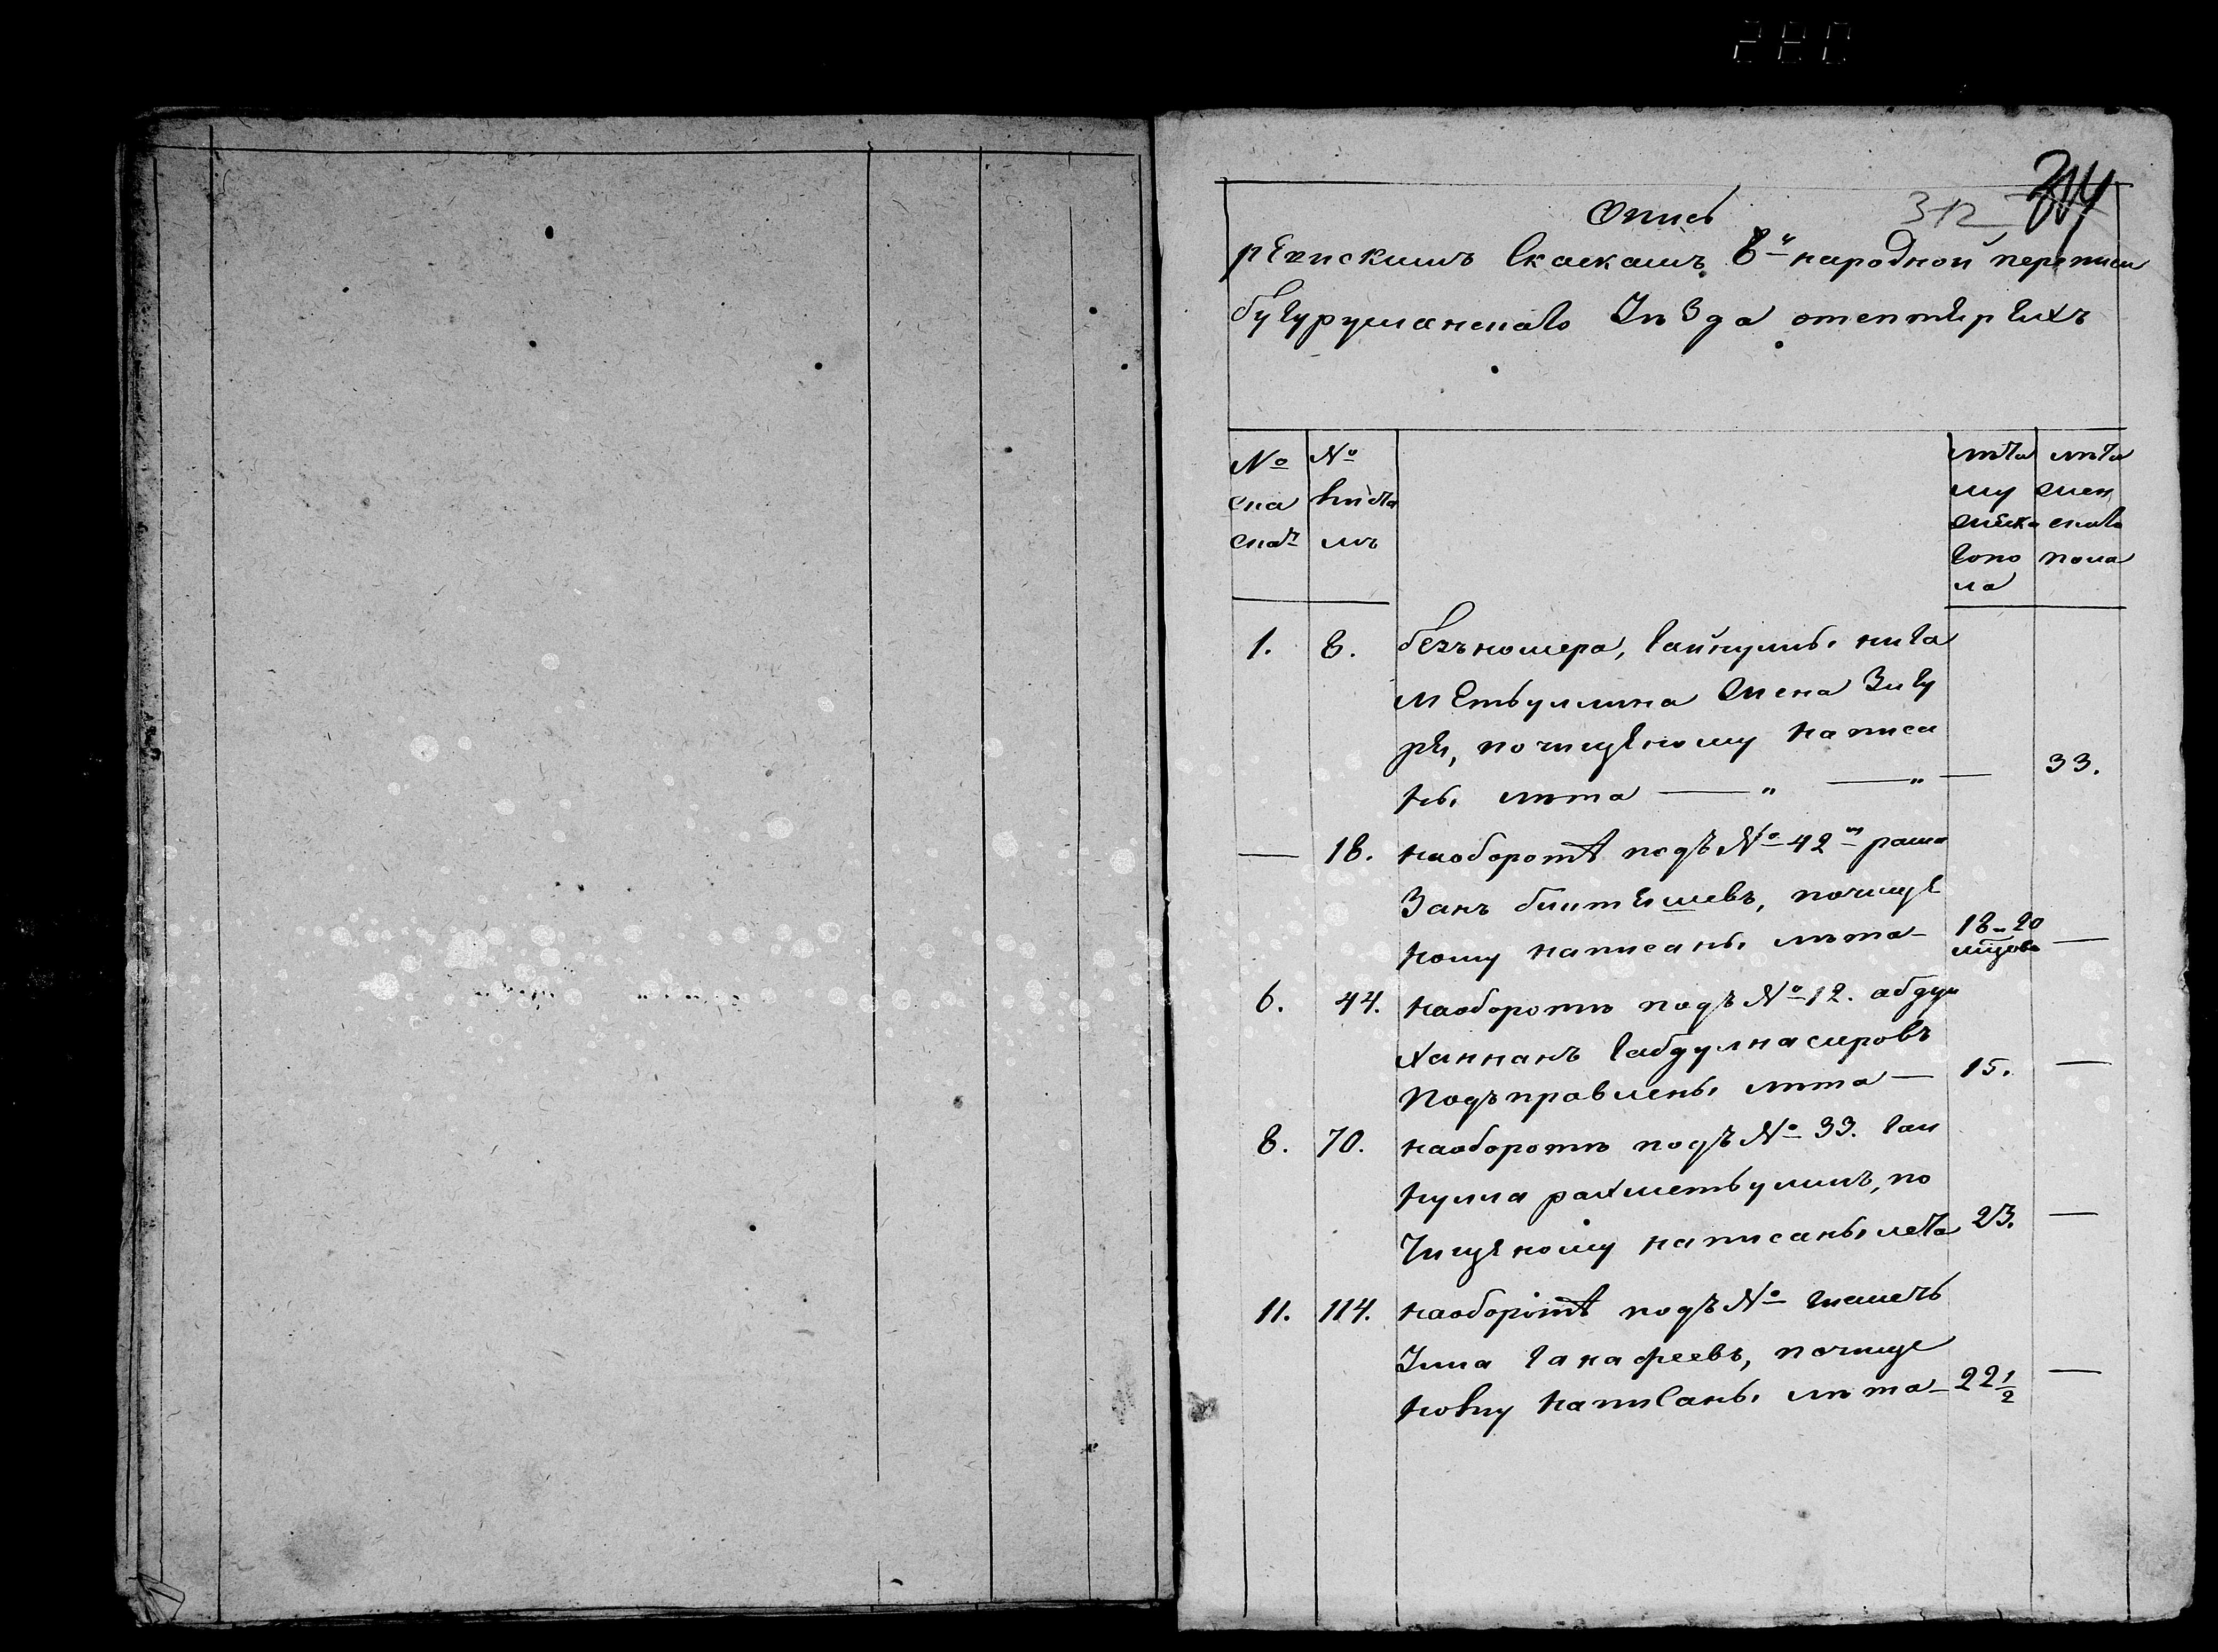 280
Опись
312 314
ревискимъ скаскамъ 8й народной переписи
бугурусланскаго Уѣзда отептяряхъ
№ ска скаʼ
№ листа мъ
лѣта мужеска гопо ла
лѣта женскаго пола
1. 8. безъномера, гайнулы нига
метьуллина жена Зигу
ря, почищеному написа
ны лѣта — " — " — 33.
— 18. наоборотѣ подъ № 42м рама
Занъ биктяшевъ, почище
ному написаны лѣта — 18 20 мцовъ —
6. 44. наоборотѣ подъ № 12. абдул
ханнанъ габдулнасировъ
Подъправлены лѣта — 15. —
8. 70. наоборотѣ подъ № 33. гай
нулла рахметьулинъ, по
Чищеному написаны лѣта 23. —
11. 114. наоборотѣ подъ №
ганафеевъ, почище
ному написаны лѣта — 22 1/2 —